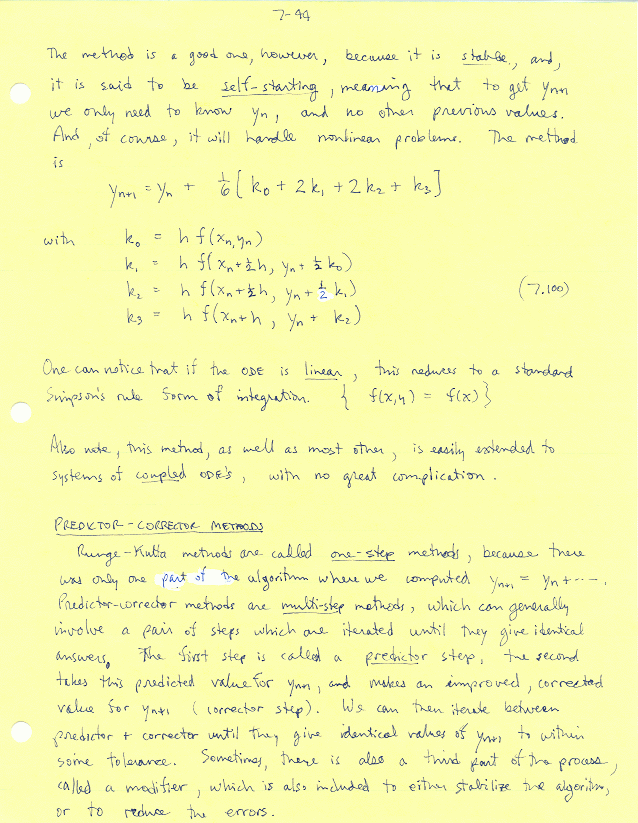 7-44
The method is a good one, however, because it is stable, and,
it is said to be self-starting, meaning that to get yn+1
we only need to know yn, and no other previous values.
And, of course, it will handle nonlinear problems. The method
is
yn+1 = yn + 1/6 [ k0 + 2k1 + 2k2 + k3 ]
with k0 = h f(xn, yn)
k1 = h f(xn + 1/2 h, yn + 1/2 k0)
k2 = h f(xn + 1/2 h, yn + 1/2 k1) (7.100)
k3 = h f(xn + h, yn + k2)
One can notice that if the ODE is linear, this reduces to a standard
Simpson's rule form of integration. { f(x,y) = f(x) }
Also note, this method, as well as most other, is easily extended to
systems of coupled ODE's, with no great complication.
PREDICTOR-CORRECTOR METHODS
Runge-Kutta methods are called one-step methods, because there
was only one part of the algorithm where we computed yn+1 = yn + ----.
Predictor-corrector methods are multi-step methods, which can generally
involve a pair of steps which are iterated until they give identical
answers. The first step is called a predictor step, the second
takes this predicted value for yn+1, and makes an improved, corrected
value for yn+1 (corrector step). We can then iterate between
predictor + corrector until they give identical values of yn+1 to within
some tolerance. Sometimes, there is also a third part of the process,
called a modifier, which is also included to either stabilize the algorithm,
or to reduce the errors.